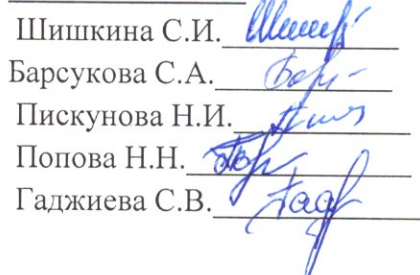 Шишкина С.И.
Барсукова С.А.
Пискунова Н.И.
Попова Н.Н.
Гаджиева С.В.